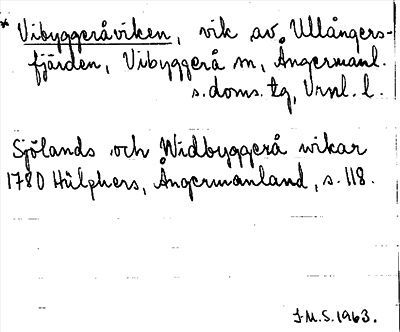 * Vibyggeråviken, vik av Ullångers-
fjärden, Vibyggerå sn, Ångermanl.
s. doms. tg, Vrnl. l.
Sjölands och Widbyggerå wikar
1780 Hülphers, Ångermanland, s. 118.
I.M.S. 1963.